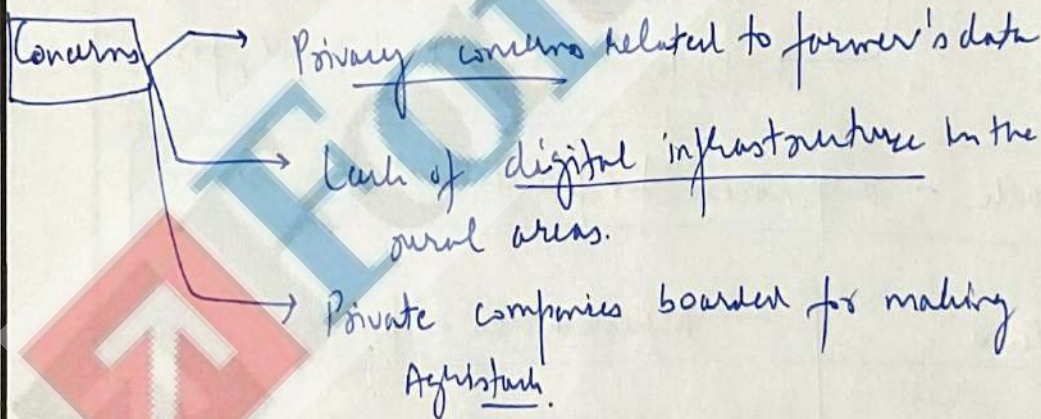 Concerns
Privacy concerns related to farmer's data
Lack of digital infrastructure in the
rural areas.
Private companies boarded for making
Agristack.